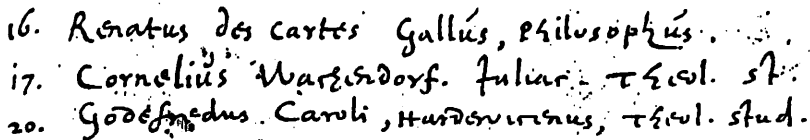 16. Renatus des Cartes Gallus, Philosophus.
17. Cornelius Wachendorf. Juliac. Theol. st.
20. Godefredus Caroli, Hardervicenus, Theol. stud.